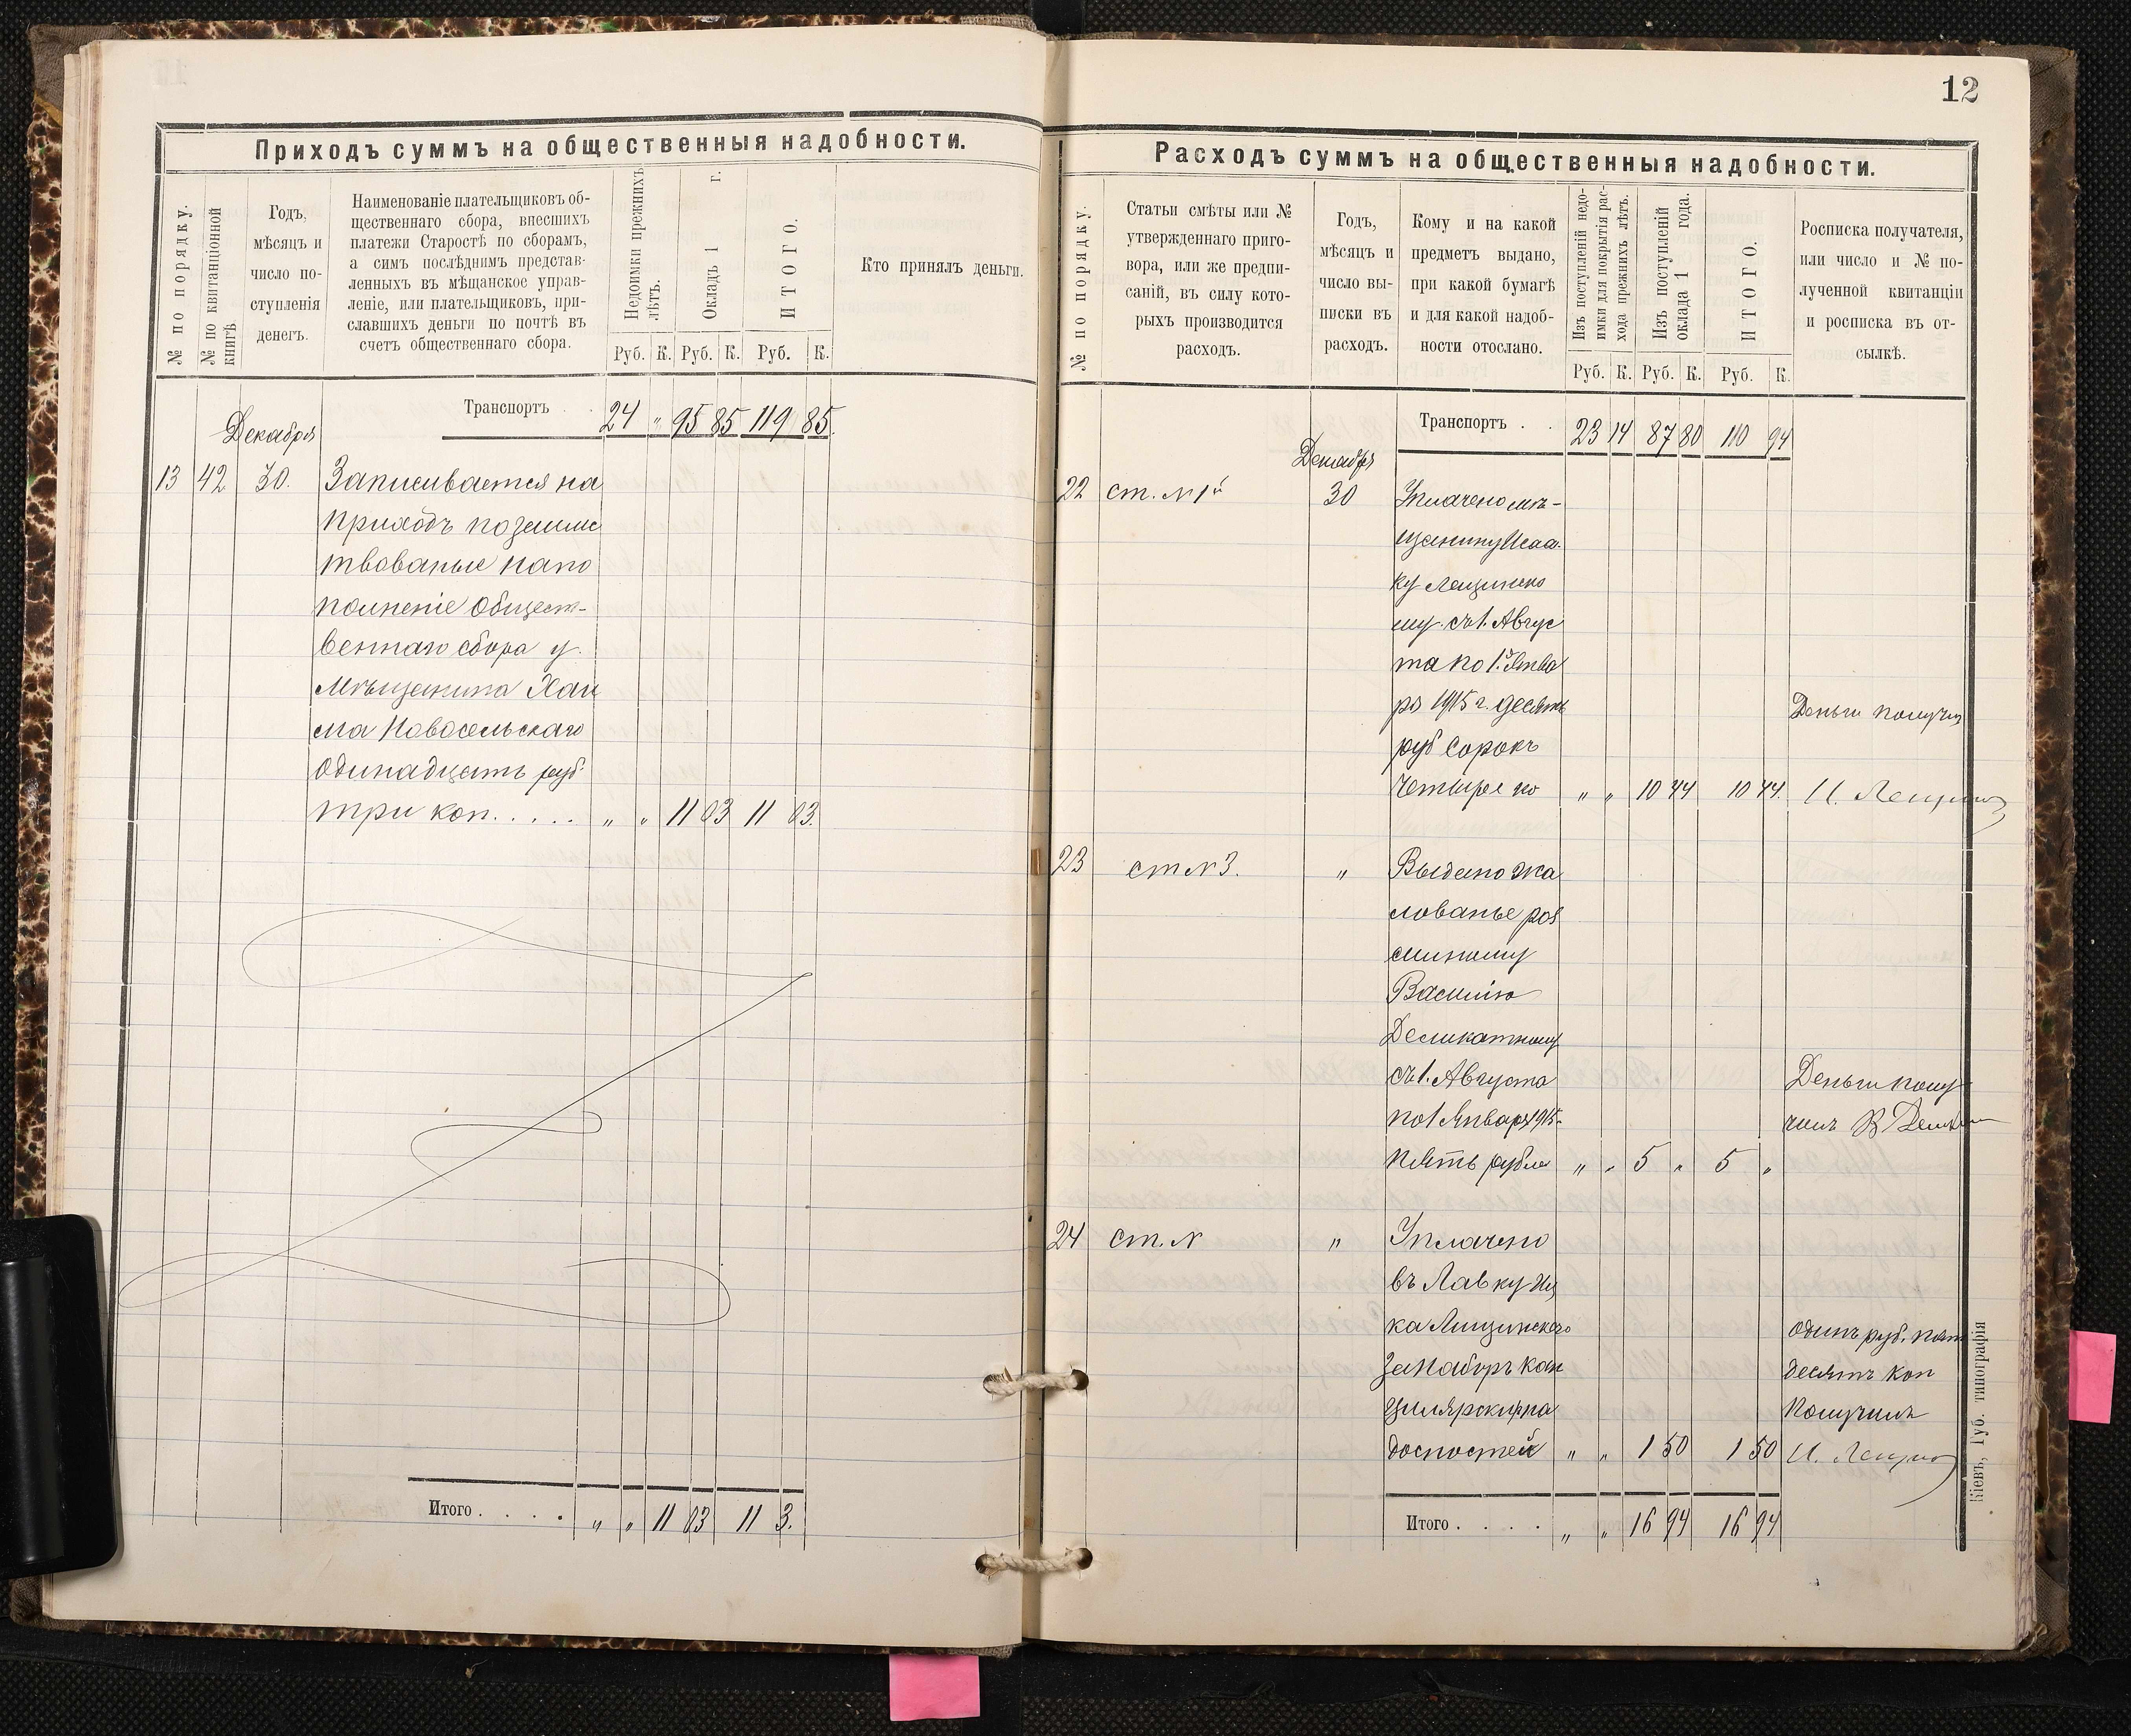 Приходъ суммъ на общественныя надобности.
№ по порядку.
№ по квитанціонной книгѣ
Годъ,
мѣсяцъ и
число по-
ступленія
денегъ.
Наименованіе плательщиковъ об-
щественнаго сбора, внесшихъ
платежи Старостѣ по сборамъ,
а симъ послѣднимъ представ-
ленныхъ въ мѣщанское управ-
леніе, или плательщиковъ, при-
славшихъ деньги по почтѣ въ
счетъ общественнаго сбора.
Недоимки прежнихъ
лѣтъ.
Окладъ 1 г.
ИТОГО.
Кто принялъ деньги.
Руб. К. Руб. К. Руб. К.
Транспортъ . . 24 " 95 85 119 85.
Декабря
13 42 30. Записывается на
приходъ позаимс
твованые напо
полненіе Общест-
веннаго сбора у
Мѣщанина Хаи
ма Новосельскаго
Одинадцать руб.
три коп. . . . . " " 11 03 11 03.
Итого . . . . " " 11 03 11 3.
12
Расходъ суммъ на общественныя надобности.
№ по порядку.
Статьи смѣты или №
утвержденнаго приго-
вора, или же предпи-
саній, въ силу кото-
рыхъ производится
расходъ.
Годъ,
мѣсяцъ и
число вы-
писки въ
расходъ.
Кому и на какой
предметъ выдано,
при какой бумагѣ
и для какой надоб-
ности отослано.
Изъ поступленій недо-
имки для покрытія рас-
хода прежнихъ лѣтъ.
Изъ поступленій
оклада 1 года.
ИТОГО.
Росписка получателя,
или число и № по-
лученной квитанціи
и росписка въ от-
сылкѣ.
Руб. К. Руб. К. Руб. К.
Транспортъ . . 23 14 87 80 110 94
Декабря
22 ст. № 1й 30 Уплачено мѣ-
щанину Исаа-
ку Лещинско
му съ 1. Авгус
та по 1.е Янва
ря 1915 г. десять
Деньги получил
руб сорокъ
Четыре ко " " 10 44 10 44. И. Лещин
23 ст № 3. " Выдано жа
лованье роз
сылному
Василію
Деликатному
съ 1. Августа
Деньги полу
по 1 Января 1915
чилъ В Делик
Пять рубле " " 5 " 5 "
24 ст. № " Уплачено
въ Лавку Иц
ка Лищинскаго
Одинъ руб. пят
За Наборъ кан
десятъ коп
целярскихъ на
Получилъ
добностей " " 1 50 1 50 И. Лещин
Итого . . . . " " 16 94 16 94
Кіевъ, Губ. типографія